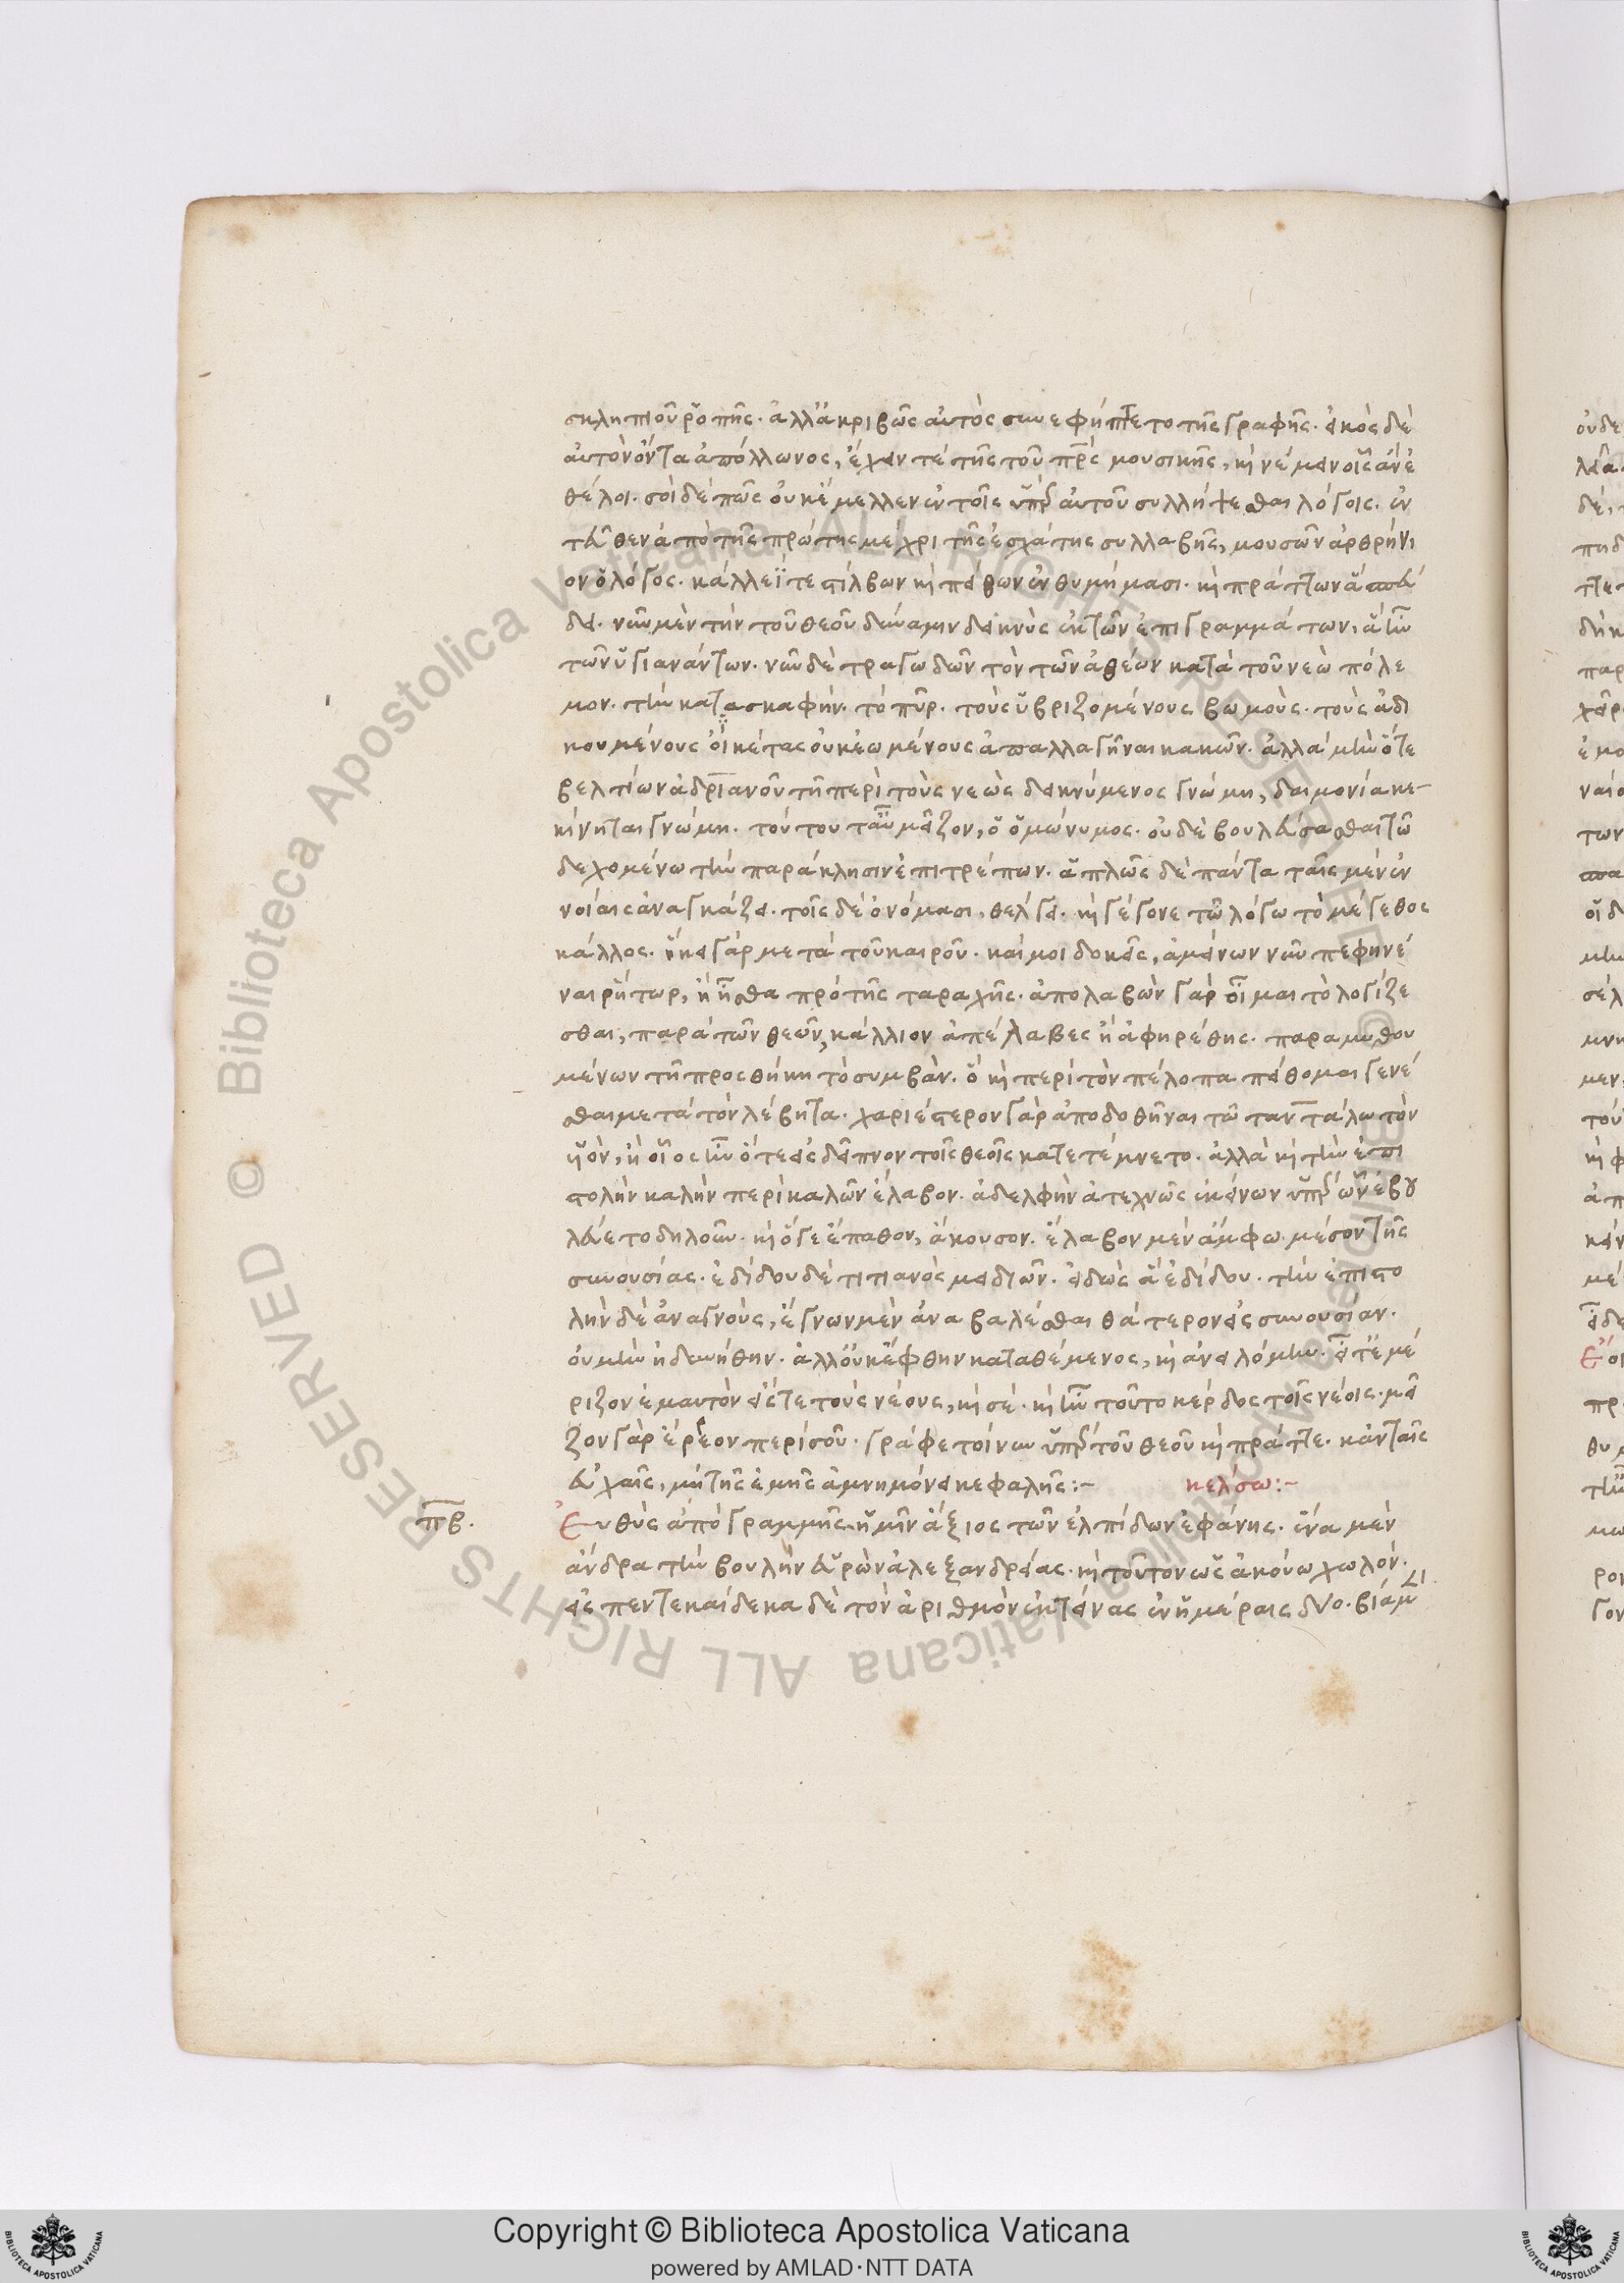 σκληπιοῦ ῥοπῆς. ἀλλἀκριβῶς αὐτὸς συνεφήπτετο τῆς γραφῆς. εἰκὸς δὲ
αὐτὸν ὄντα ἀπόλλωνος, ἔχειν τέ τῆς τοῦ πρς μουσικῆς, κ νέμειν οἷς ἂν ἐ
θέλοι. σοὶ δὲ πῶς οὐκ ἔμελλεν ἐν τοῖς ὑπὲρ αὐτοῦ συλλήψεσθαι λόγοις. ἐν
τεῦθεν ἀπὸ τῆς πρώτης μέχρι τῆς ἐσχάτης συλλαβῆς, μουσῶν ἀρθρήνι
ον ὁ λόγος. κάλλεϊ τε στίλβων κ πείθων ἐνθυμήμασι. κ πράττων ἃ σπεύ
δει. νῦν μὲν τὴν τοῦ θεοῦ δύναμιν δεικνὺς ἐκ τῶν ἐπιγραμμάτων, ἃ ἦν
τῶν ὑγιανάντων. νῦν δὲ τραγωδῶν τὸν τῶν ἀθέων κατὰ τοῦ νεὼ πόλε
μον. τὴν κατασκαφήν. τὸ πῦρ. τοὺς ὑβριζομένους βωμούς. τοὺς ἀδι
κουμένους οἰκέτας οὐκ ἐωμένους ἀπαλλαγῆναι κακῶν. ἀλλὰ μὴν ὅτε
βελτίων ἀδριανοῦ τῆ περὶ τοὺς νεὼς δεικνύμενος γνώμη, δαιμονία κε
κίνηται γνώμη. τούτου ταῦ μεῖζον, ὁ ὁμώνυμος. οὐδὲ βουλεύσασθαι τῶ
δεχομένω τὴν παράκλησιν ἐπιτρέπων. ἁπλῶς δὲ πάντα ταῖς μὲν ἐν
νοίαις ἀναγκάζει. τοῖς δὲ ὀνόμασι, θέλγει. κ γέγονε τῶ λόγω τὸ μέγεθος
κάλλος. ἥκει γὰρ μετὰ τοῦ καιροῦ. καί μοι δοκεῖς, ἀμείνων νῦν πεφηνέ
ναι ῥήτωρ, ἢ ἦσθα πρὸ τῆς ταραχῆς. ἀπολαβὼν γὰρ οἶμαι τὸ λογίζε
σθαι, παρὰ τῶν θεῶν, κάλλιον ἀπέλαβες ἢ ἀφηρέθης. παραμυθου
μένων τῆ προσθήκη τὸ συμβάν. ὃ κ περὶ τὸν πέλοπα πείθομαι γενέ
σθαι μετὰ τὸν λέβητα. χαριέστερον γὰρ ἀποδοθῆναι τῶ ταντάλω τὸν
ὑόν, ἢ οἷος ἦν ὅτε εἰς δεῖπνον τοῖς θεοῖς κατετέμνετο. ἀλλὰ κ τὴν ἐπι
στολὴν καλὴν περὶ καλῶν ἔλαβον. ἀδελφὴν ἀτεχνῶς ἐκείνων ὑπὲρ ὧν ἐβού
λετο δηλοῦν. κ ὅ γε ἔπαθον, ἄκουσον. ἔλαβον μὲν ἄμφω μέσον τῆς
συνουσίας. ἐδίδου δὲ τιτιανὸς μειδιῶν. εἰδὼς ἃ ἐδίδου. τὴν ἐπιστο
λὴν δὲ ἀναγνούς, ἔγνων μὲν ἀναβαλέσθαι θάτερον εἰς συνουσίαν.
οὐ μὴν ἠδυνήθην. ἀλλοὐκ ἔφθην καταθέμενος, κ ἀνειλόμην. εἶτ ἐμέ
ριζον ἐμαυτὸν εἴς τε τοὺς νέους, κ σέ. κ ἦν τοῦτο κέρδος τοῖς νέοις. μεῖ
ζον γὰρ ἔρρεον περὶ σοῦ. γράφε τοίνυν ὑπὲρ τοῦ θεοῦ κ πράττε. κἀν ταῖς
εὐχαῖς, μὴ τῆς ἐμῆς ἀμνημόνει κεφαλῆς:~ κέλσω:~
πβ. Εὐθὺς ἀπὸ γραμμῆς ἡμῖν ἄξιος τῶν ἐλπίδων ἐφάνης. ἕνα μὲν
ἄνδρα τὴν βουλὴν εὑρὼν ἀλεξανδρείας. κ τοῦτον ὡς ἀκούω χωλόν.
εἰς πεντεκαίδεκα δὲ τὸν ἀριθμὸν ἐκτείνας ἐν ἡμέραις δύο. βίαν